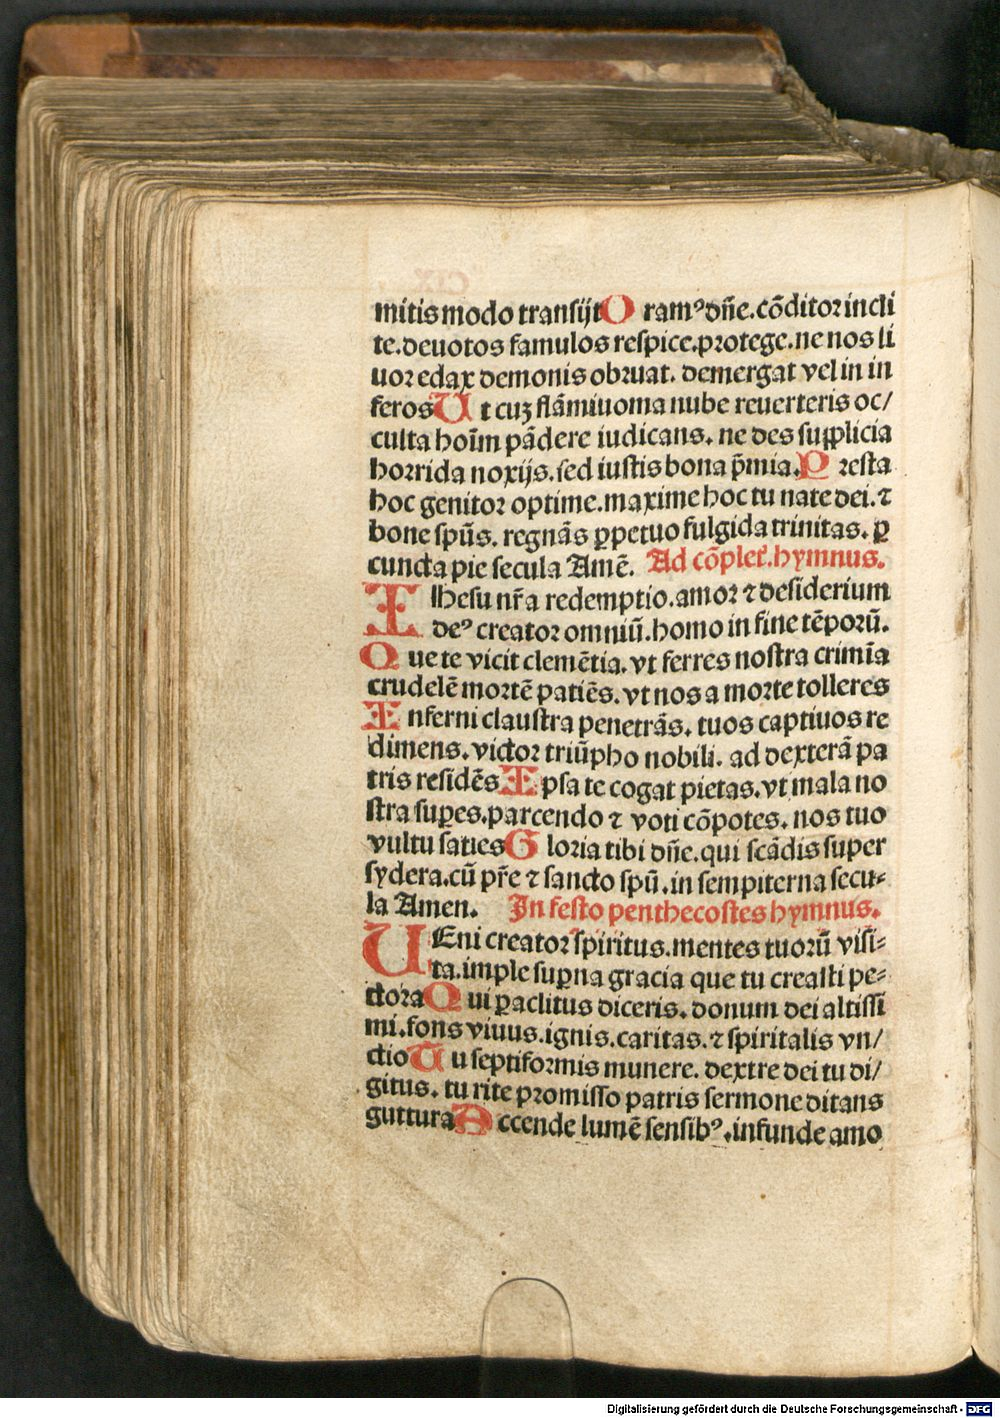 mitis modo transijt O ramꝰ dñe. cõditor incli
te. deuotos famulos respice. protege. ne nos li
uor edax demonis obruat. demergat vel in in
feros U t cuz flãmiuoma nube reuerteris oc/
culta hoĩm pãdere iudicans. ne des supplicia
horrida noxijs. sed iustis bona p̃mia. P resta
hoc genitor optime. maxime hoc tu nate dei. ⁊
bone spũs. regnãs ꝑpetuo fulgida trinitas. ꝑ
cuncta pie secula Amẽ. Ad cõplet̃. hymnus.
I Ihesu nr̃a redemptio. amor ⁊ desiderium
deꝰ creator omniũ. homo in fine tẽporũ.
Q ue te vicit clemẽtia. vt ferres nostra crimĩa
crudelẽ mortẽ patiẽs. vt nos a morte tolleres
I nferni claustra penetrãs. tuos captiuos re
dimens. victor triũpho nobili. ad dexterã pa
tris residẽs I psa te cogat pietas. vt mala no
stra suꝑes. parcendo ⁊ voti cõpotes. nos tuo
vultu saties G loria tibi dñe. qui scãdis super
sydera. cũ pr̃e ⁊ sancto spũ. in sempiterna secu-
la Amen. In festo penthecostes hymnus.
U Eni creator spiritus. mentes tuorũ visi-
ta. imple suꝑna gracia que tu creasti pe-
ctora Q ui ꝑaclitus diceris. donum dei altissi
mi. fons viuus. ignis. caritas. ⁊ spiritalis vn/
ctio T u septiformis munere. dextre dei tu di/
gitus. tu rite promisso patris sermone ditans
guttura A ccende lumẽ sensibꝰ. infunde amo
Digitalisierung gefördert durch die Deutsche Forschungsgemeinschaft - DFG